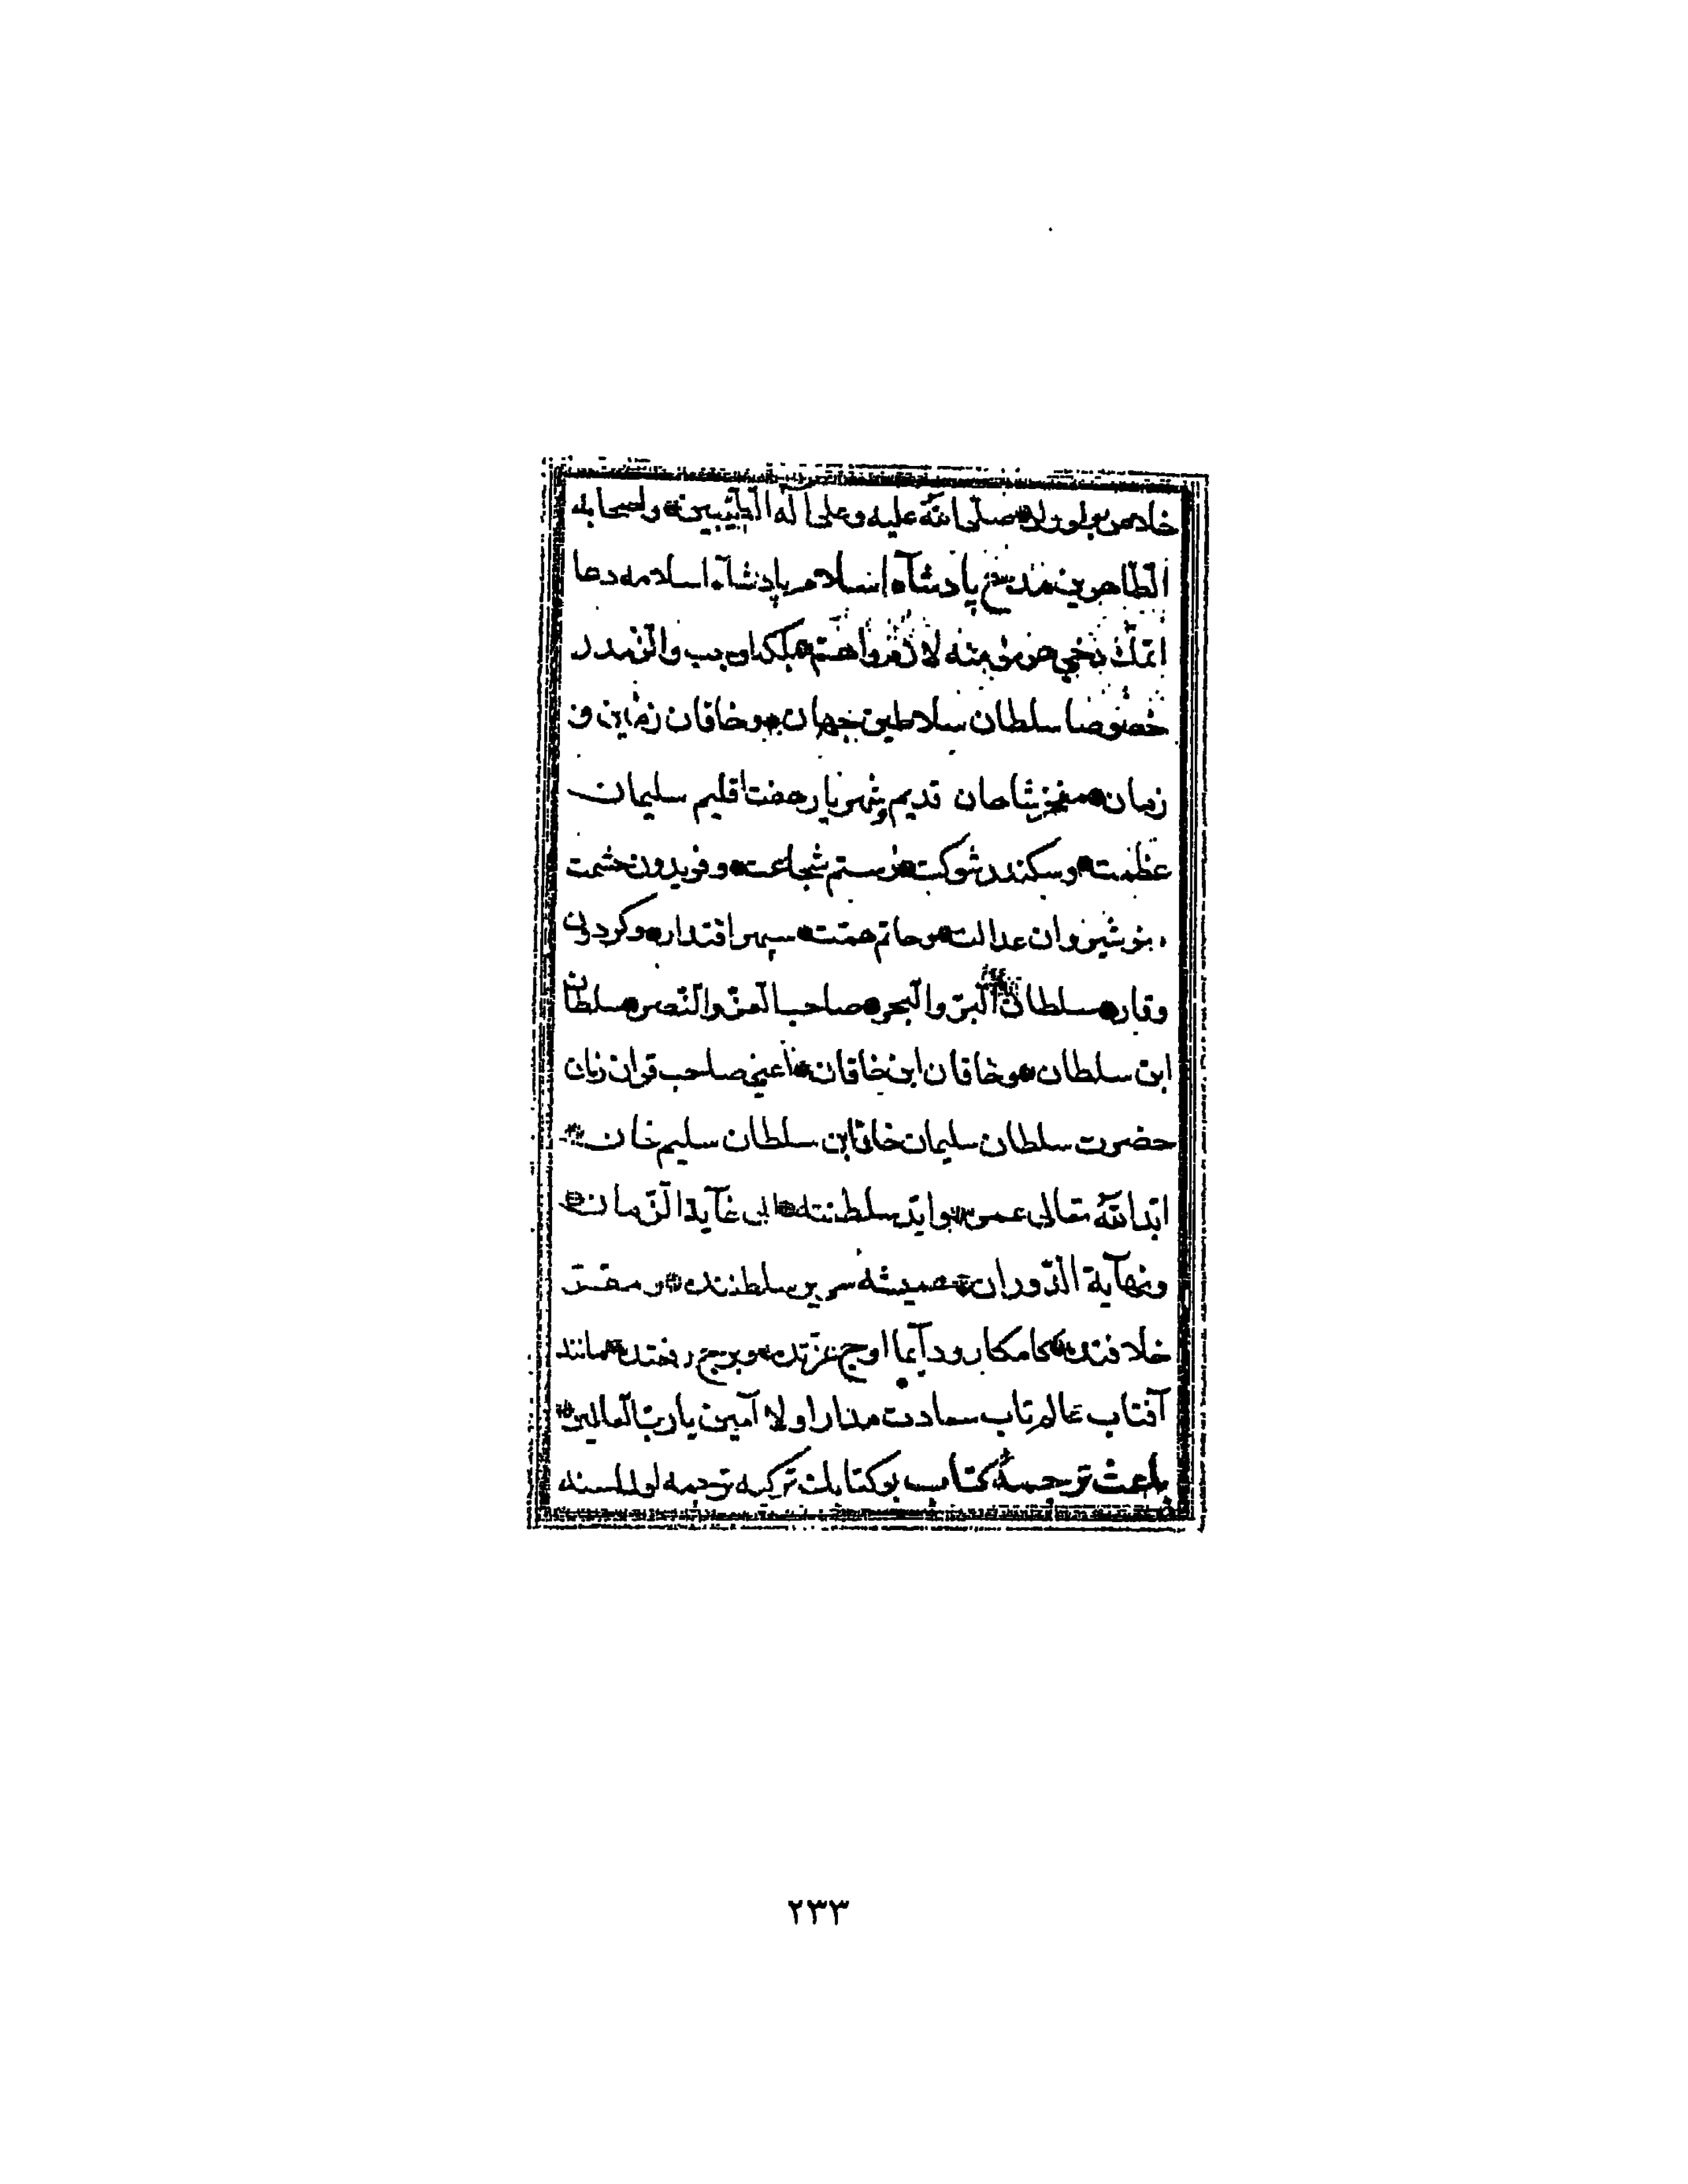 خلاص بولورلر صلّی اللّه علیه وعلی آله الطّیّبین واصحابه
الطّاهرین مدح پادشاه اسلام پادشاه اسلامه دعا
اتمك دخی هر مؤمنه لازم واهم بلکه اوجب والزمدر
خصوصا سلطان سلاطین جهان وخاقان زمین و
زمان مفخر شاهان قدیم وشهریار هفت اقلیم سلیمان
عظمت وسکندر شوکت رستم شجاعت وفریدون حشمت
نوشیروان عدالت وحاتم همّت سپهر اقتدار وکردون
وقار سلطان البرّ والبحر صاحب العزّ والنّصر سلطان
ابن سلطان وخاقان ابن خاقان اعنی صاحب قران زمان
حضرت سلطان سلیمان خان ابن سلطان سلیم خان
ابّد اللّه تعالی عمره وابّد سلطنته الی غآیة الزّمان
ونهآیة الدّوران همیشه سریر سلطنتده ومقرّ
خلافتده کامکار ودآیما اوج عزّتده وبرج رفعتده مانند
آفتاب عالم تاب سعادت مدار اولا آمین یا ربّ العالمین
باعث ترجمۀ کتاب بو کتابك ترکیه ترجمه اولماسنه
٢٣٣